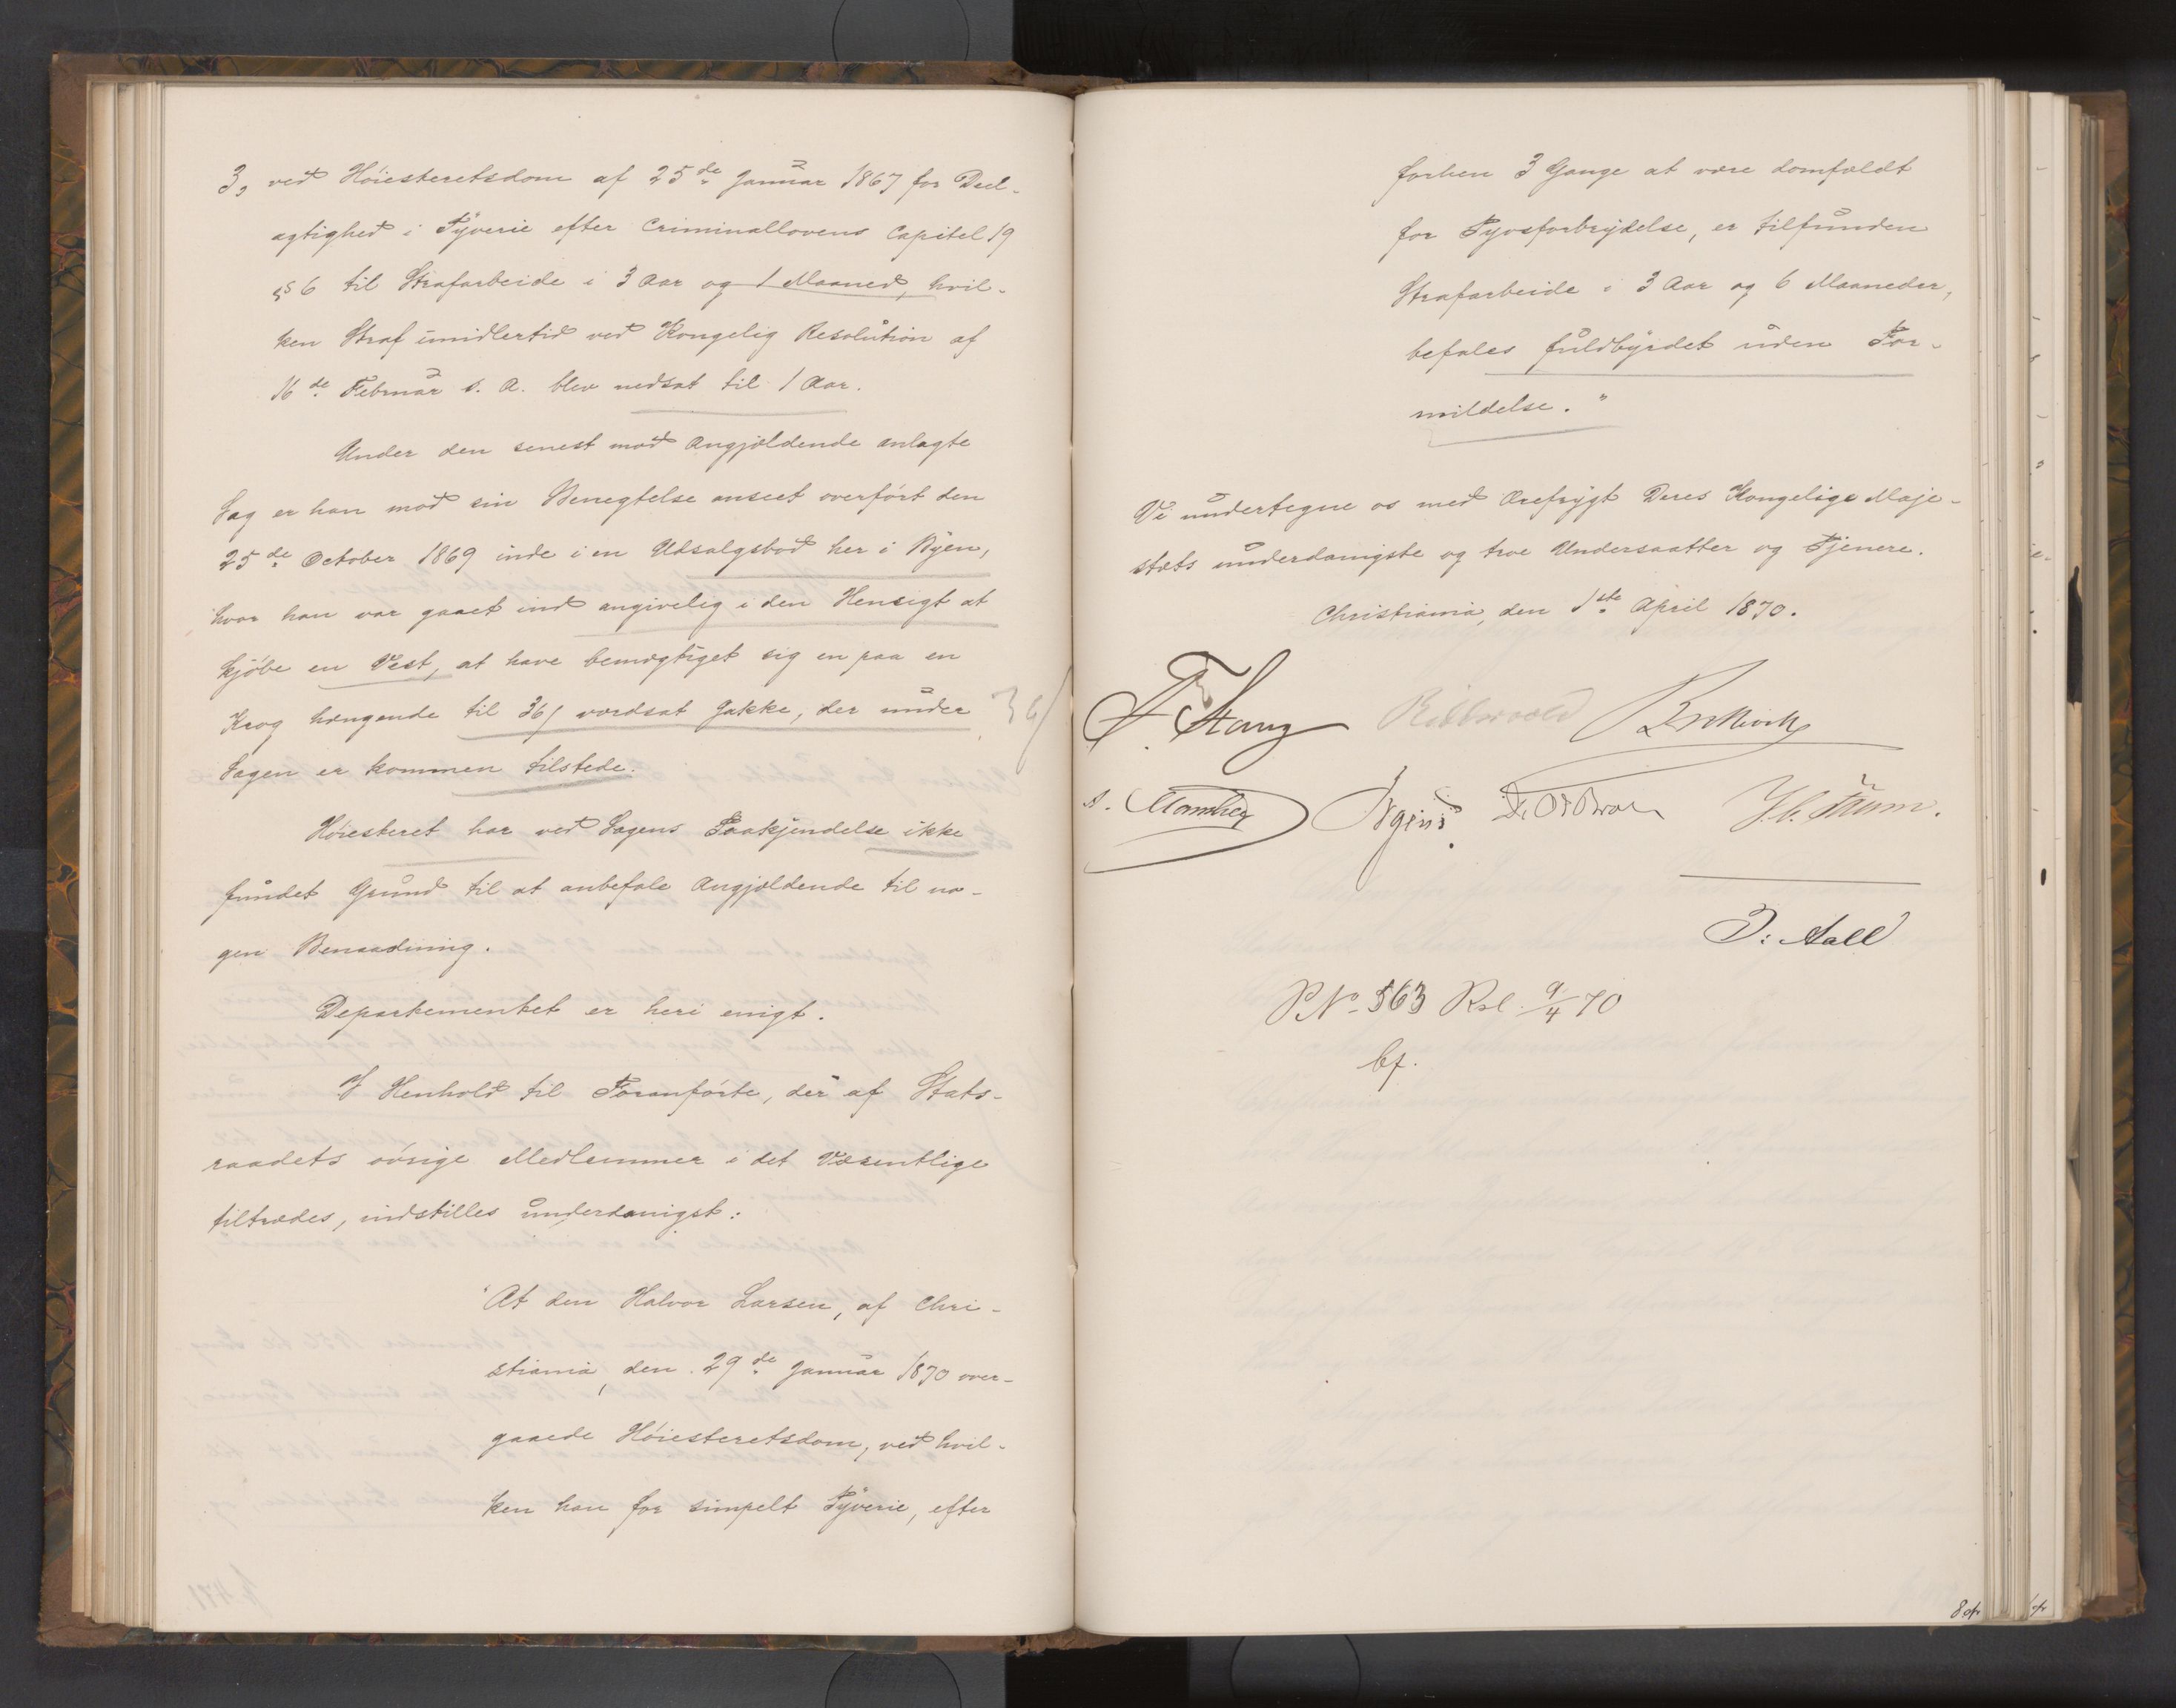 3, ved Höiesteretsdom af 25de Januar 1867 for Deel-
agtighed i Tyverie efter Criminallovens Capitel 19
§ 6 til Strafarbeide i 3 Aar og 1 Maaned, hvil-
ken Straf imidlertid ved Kongelig Resolution af
16de Februar s. A. blev nedsat til 1 Aar.
Under den senest mod Angjældende anlagte
Sag er han mod sin Benegtelse anseet overført den
25de October 1869 inde i en Udsalgsbod her i Byen,
hvor han var gaaet ind angivelig i den Hensigt at
kjöbe en Vest, at have bemægtiget sig en paa en
Krog hængende til 36 / værdsat Jakke, der under
36 /
Sagen er kommen tilstede.
Höiesteret har ved Sagens Paakjendelse ikke
fundet Grund til at anbefale Angjældende til no-
gen Benaadning.
Departementet er heri enigt.
I Henhold til Foranförte, der af Stats-
raadets övrige Medlemmer i det Væsentlige
tiltrædes, indstilles underdanigst:
"At den Halvor Larsen, af Chri-
stiania, den 29de Januar 1870 over-
gaaede Höiesteretsdom, ved hvil-
ken han for simpelt Tyverie, efter
forhen 3 Gange at være domfældt
for Tyvsforbrydelse, er tilfunden
Strafarbeide i 3 Aar og 6 Maaneder,
befales fuldbyrdet uden For-
mildelse."
Vi undertegne os med Ærefrygt Deres Kongelige Maje-
stæts underdanigste og troe Undersaatter og Tjenere.
Christiania, den 1ste April 1870.
F. Stang Riddervold
Irgens
J. Aall
P No 563 Rsl. 9/4 70
bf.